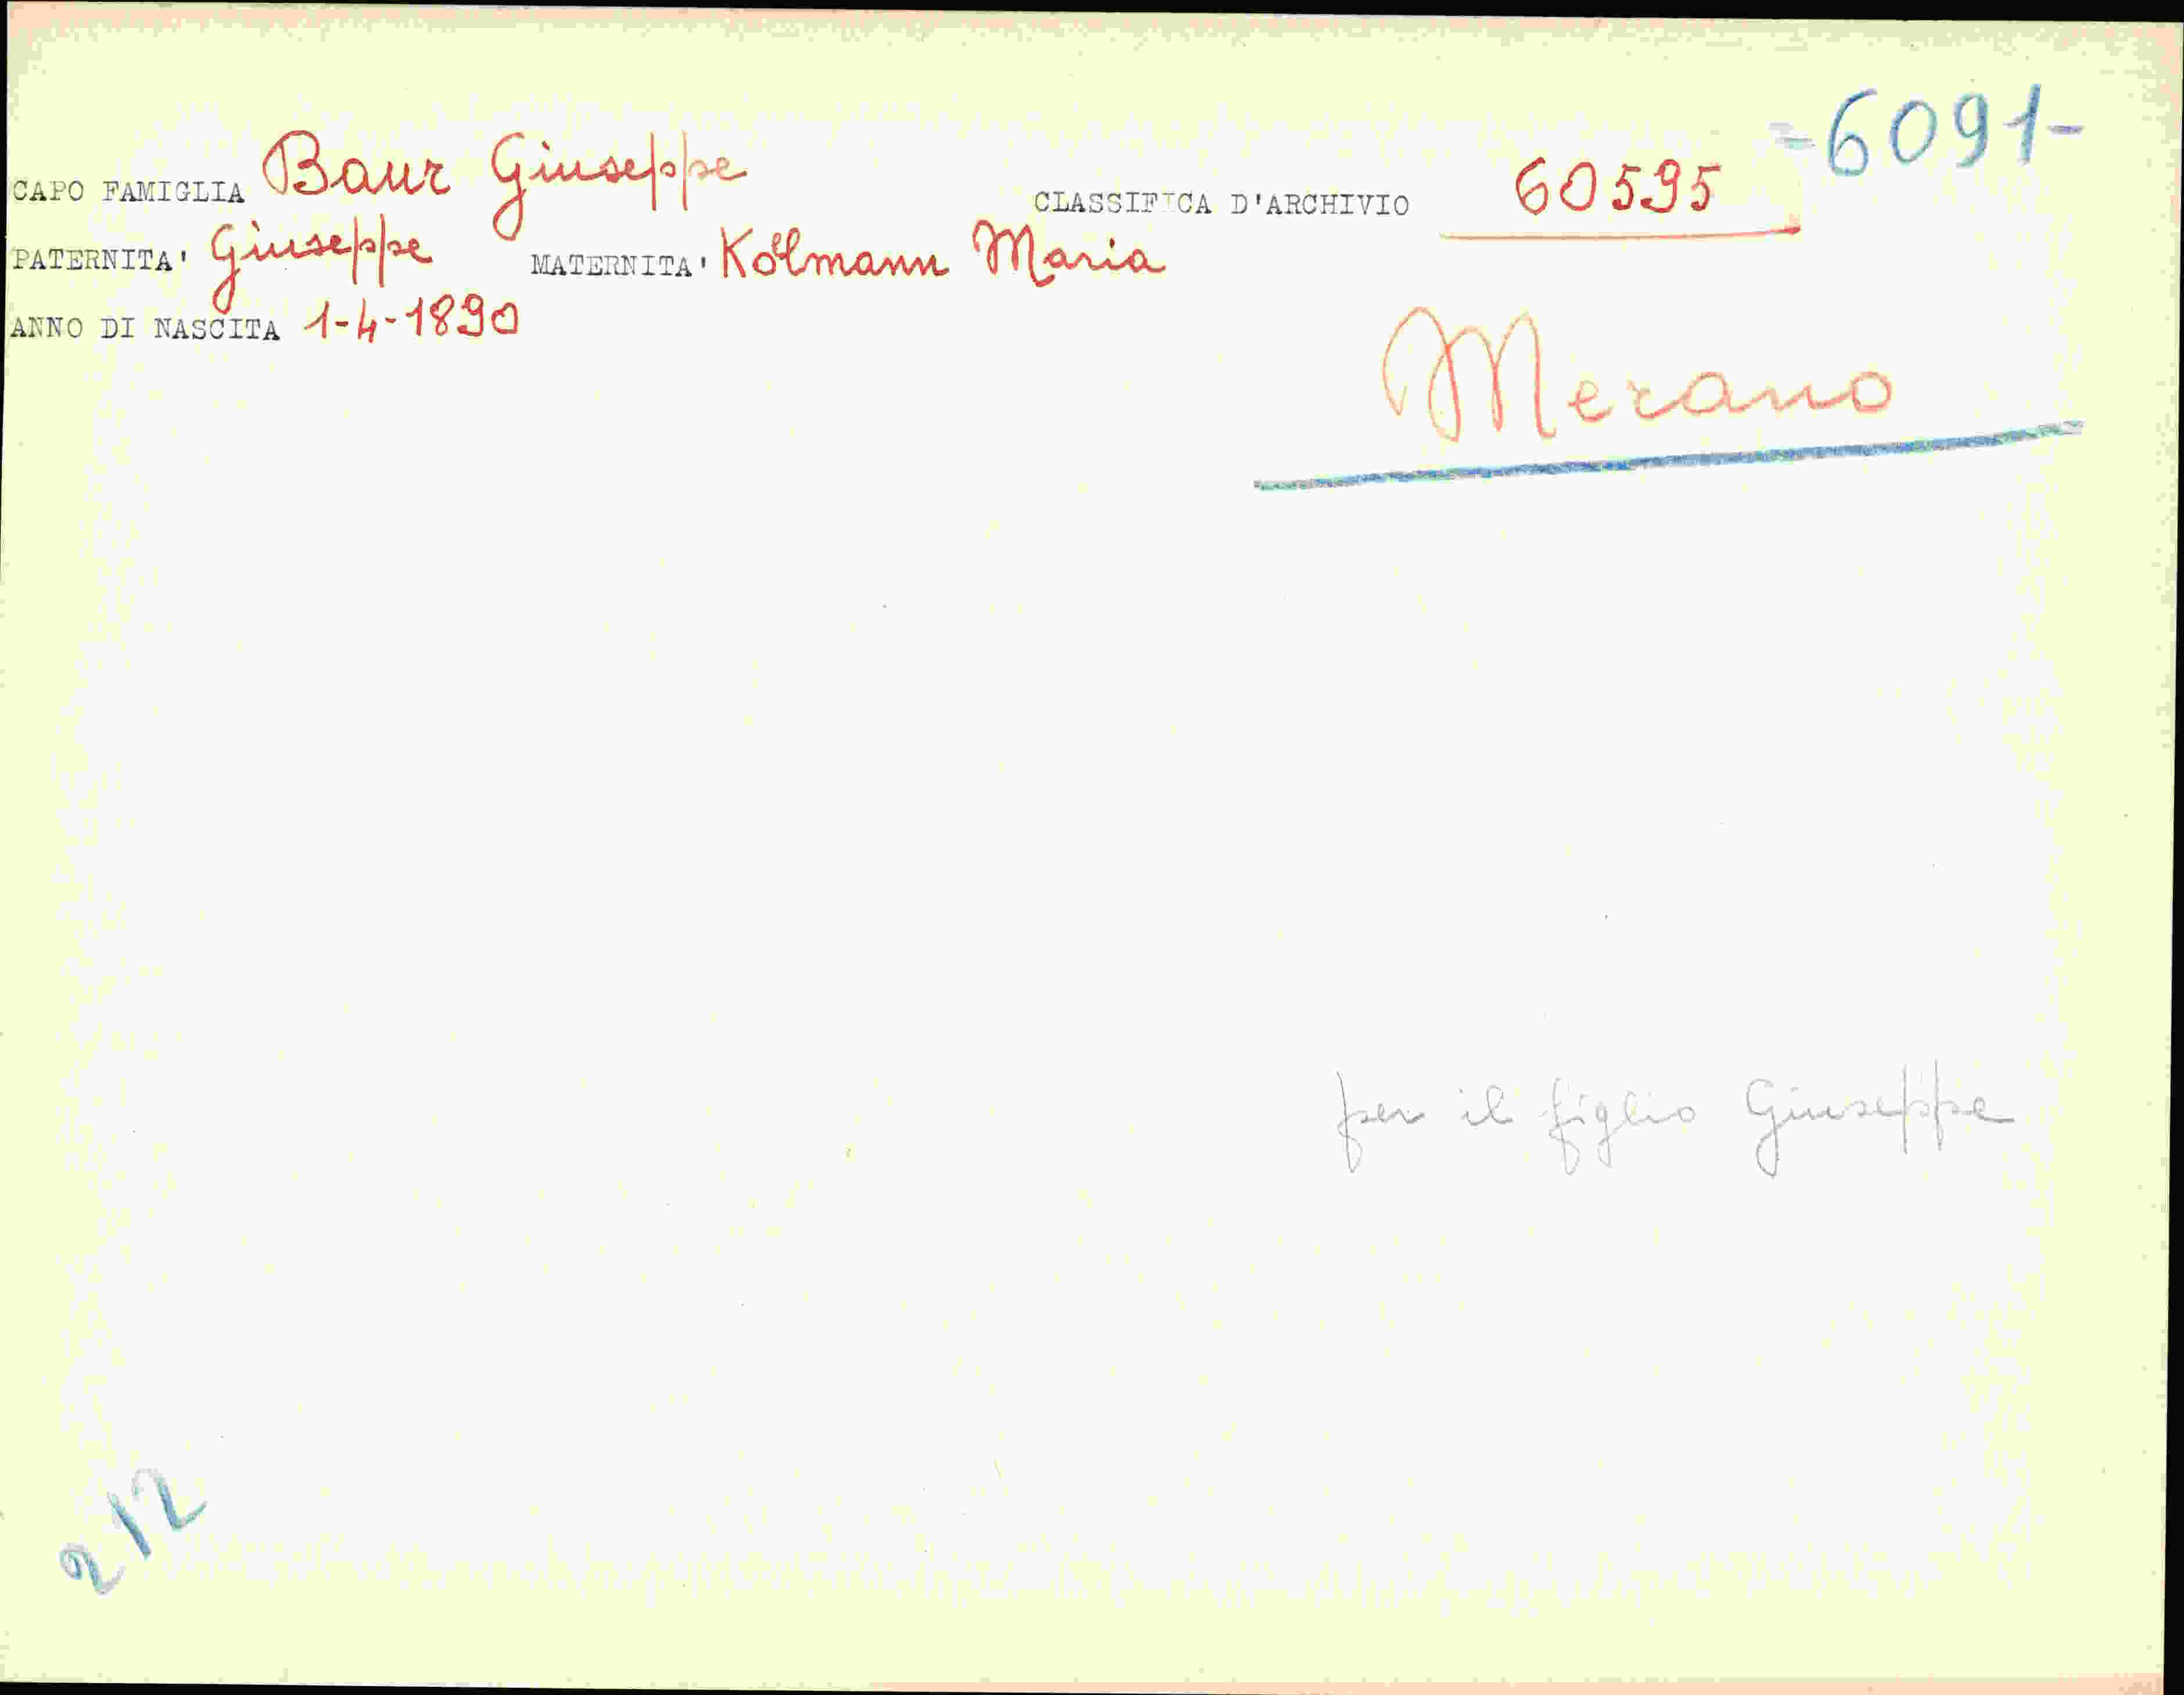 -6091-
CAPO FAMIGLIA Baur Giuseppe CLASSIFICA D'ARCHIVIO 60595
PATERNITA' Giuseppe MATERNITA' Kölmann Maria
ANNO DI NASCITA 1-4-1890
Merano
per il figlio Giuseppe
212